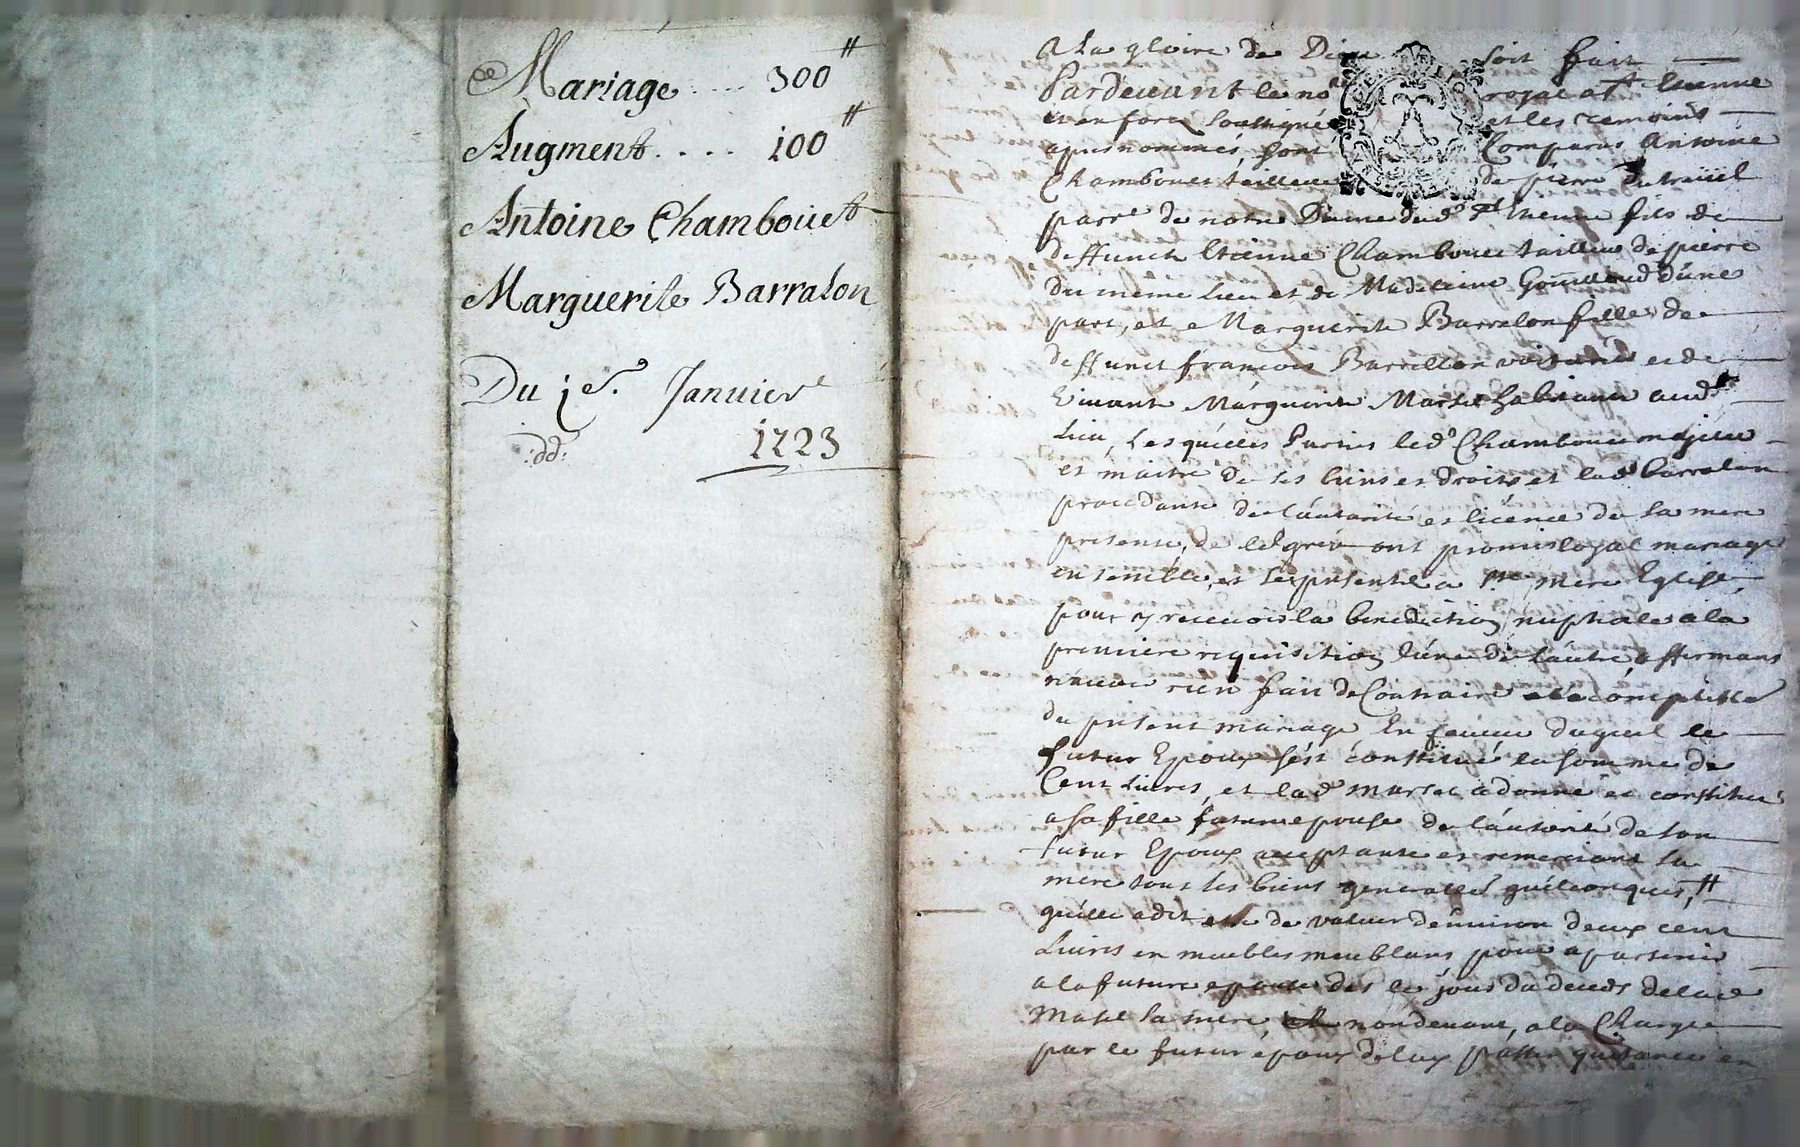 Mariage .... 300ᵗᵗ
Augment .... 100ᵗᵗ
Antoine Chambouet
Marguerite Barralon
Du 1er. Janvier
1723
A La gloire de Dieu soit fait
Pardevant le nore royal a St Etienne
et en forez soussigné et les temoins
apres nommés, sont Comparus Antoine
Chambouet tailleur de pierre du treüil
parre de notre Dame dud. St Etienne fils de
deffunct Etienne Chambouet tailleur de pierre
du meme lieu et de Madeleine d'une
part, et Marguerite Barralon fille de
deffunct françois Barrallon et de
vivante Marguerite Marset habitante aud.
Lieu, Lesquelles Parties led. Chambouet majeur
et maitre de ses biens et droits et lad. Barralon
procedante de l'autorité et licence de sa mere
presente, de leur gré ont promis loyal mariage
ensemble, et se presenter a Ste mere Eglise
pour y recevoir la benediction nuptiale a la
premiere requisition l'une de l'autre, affirmans
n'avoir rien fait de Contraire
du present mariage En faveur duquel le
futur Epoux s'est constitué la somme de
Cent Livres, et lad. Marset a donné et constitué
a sa fille future epouse de l'autorité de son
futur Epoux acceptante et remerciant sa
mere tous ses biens generalles quelconques,
qu'elle a dit etre de valeur d'environ deux cent
Livres en meubles meublans pour apartenir
a la future epouse des le jour du deceds de lad.
Marset sa mere, non devant, a la Charge
par le futur époux de luy passer quittance en